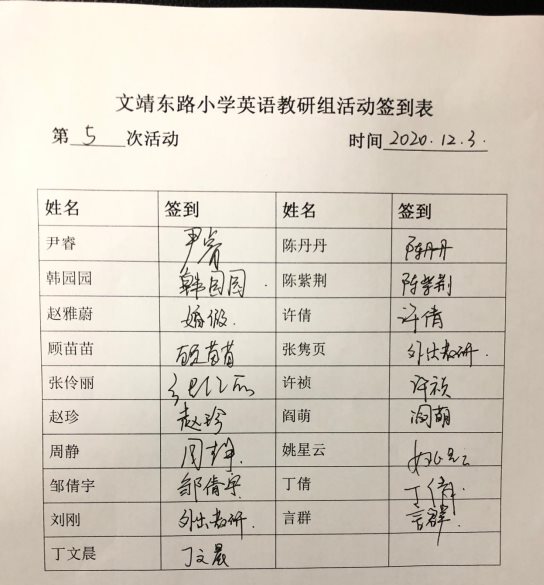 文靖东路小学英语教研组活动签到表
第 5 次活动 时间 2020.12.3.
姓名 签到 姓名 签到
尹睿 尹睿 陈丹丹 陈丹丹
韩园园 韩园园 陈紫荆 陈紫荆
赵雅蔚 婚假. 许倩 许倩
顾苗苗 顾苗苗 张隽页 外出教研.
张伶丽 张伶丽 许祯 许祯
赵珍 赵珍 阎萌 阎萌
周静 周静. 姚星云 姚星云
邹倩宇 邹倩宇 丁倩 丁倩.
刘刚 外出教研. 言群 言群.
丁文晨 丁文晨